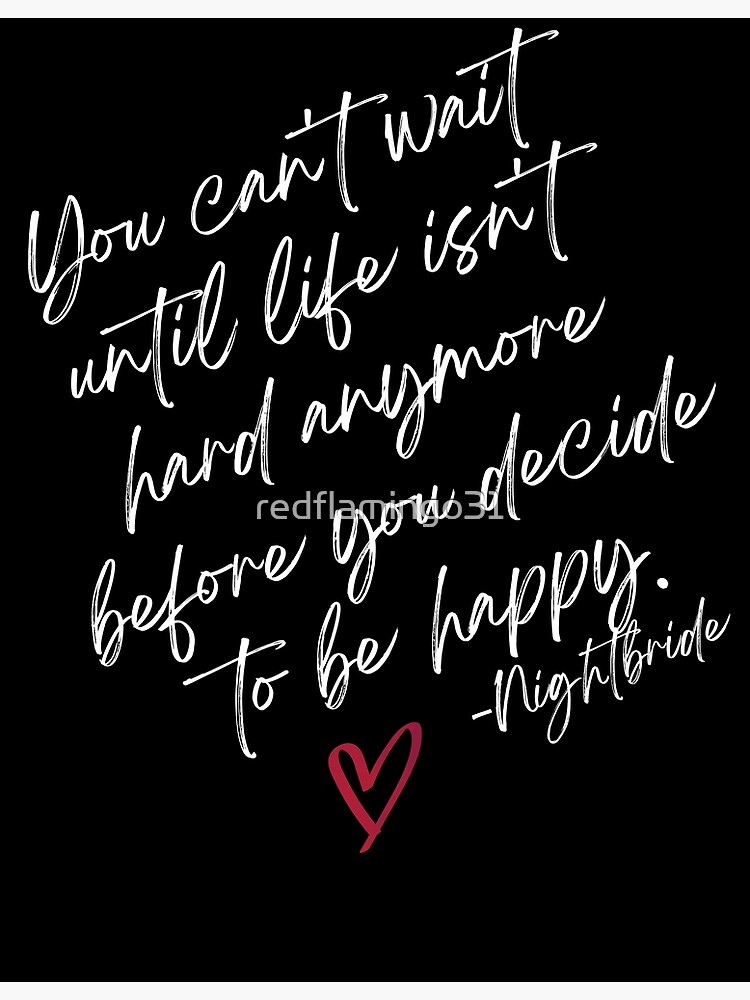 You can't wait
until life isn't
hard anymore
before you decide
redflamingo31
to be happy.
-Nightbride